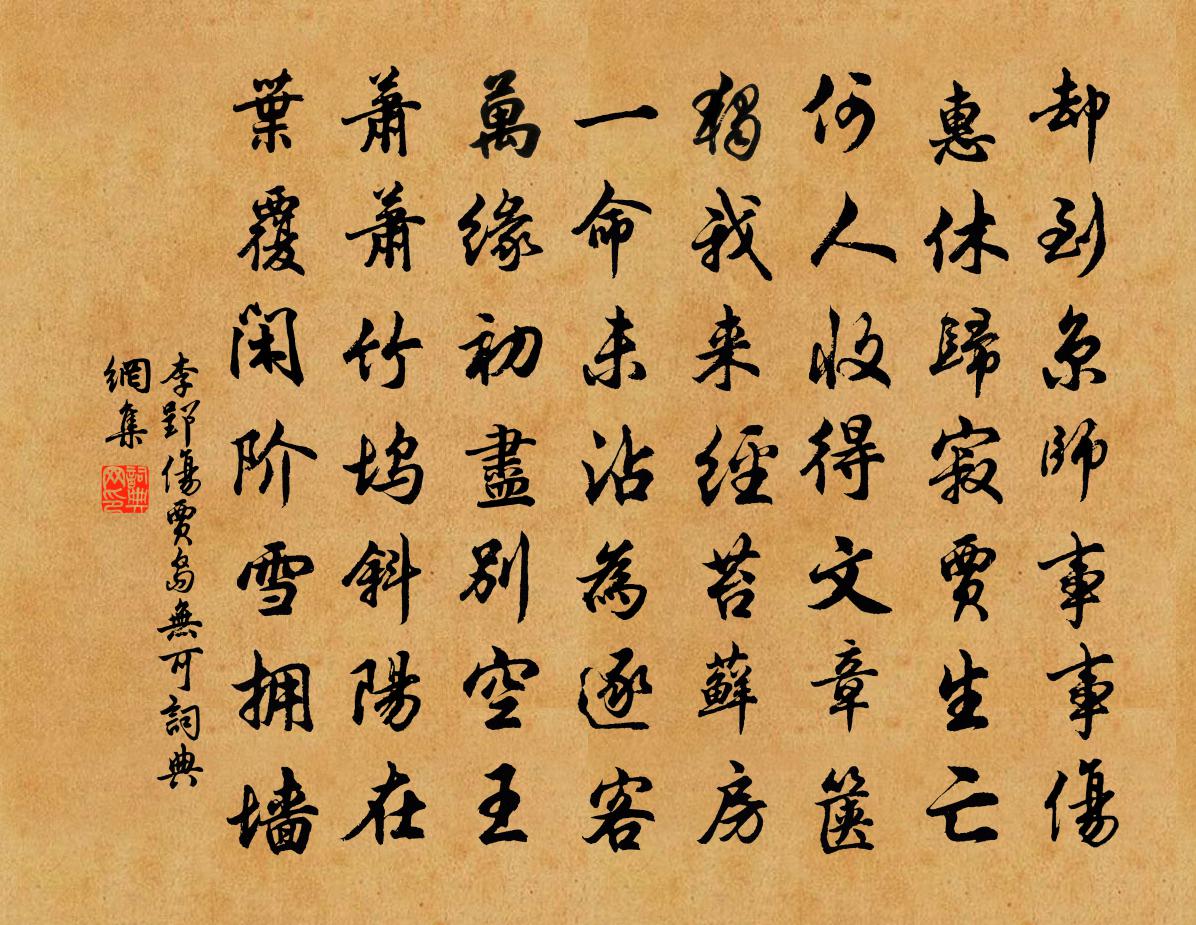 却到京師事事傷
惠休歸寂賈生亡
何人收得文章篋
獨我来經苔蘚房
一命未沾為逐客
萬緣初盡別空王
蕭蕭竹塢斜陽在
葉覆閑阶雪拥墙
李郢傷賈島無可詞典
網集
詞典
网印